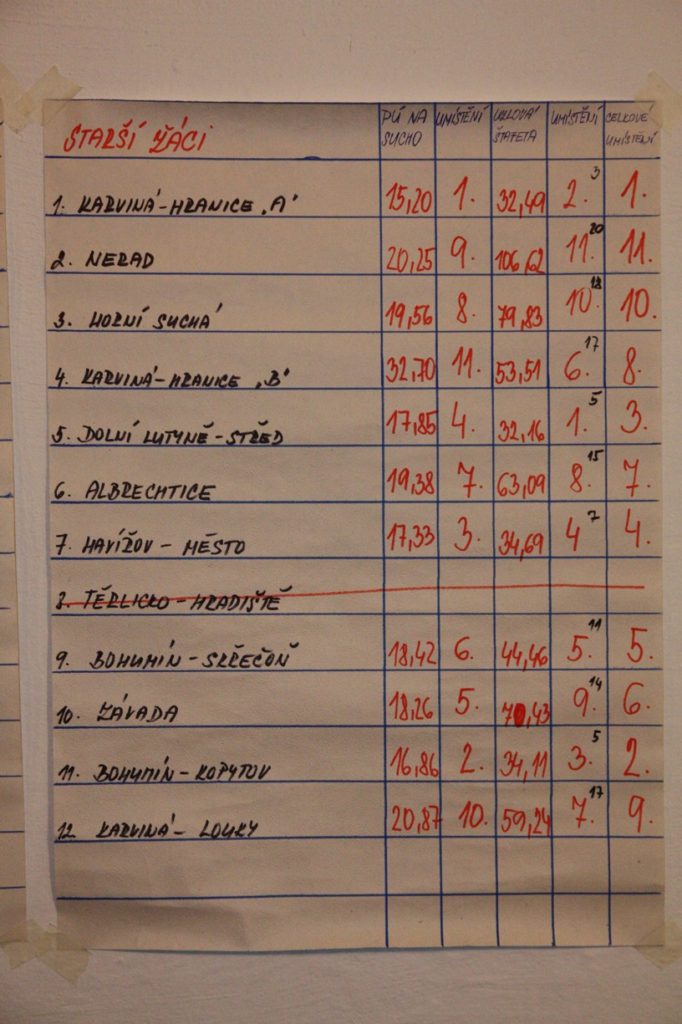 STARŠÍ ŽÁCI PÚ NA SUCHO UMÍSTĚNÍ UZLOVÁ ŠTAFETA UMÍSTĚNÍ CELKOVÉ UMÍSTĚNÍ
1. KARVINÁ-HRANICE "A" 15,20 1. 32,49 2. 3 1.
2. NERAD 20,25 9. 106,62 11. 20 11.
3. HORNÍ SUCHÁ 19,56 8. 79,83 10. 18 10.
4. KARVINÁ-HRANICE "B" 32,70 11. 53,51 6. 17 8.
5. DOLNÍ LUTYNĚ-STŘED 17,85 4. 32,16 1. 5 3.
6. ALBRECHTICE 19,38 7. 63,09 8. 15 7.
7. HAVÍŘOV - MĚSTO 17,33 3. 34,69 4 7 4.
8. TĚRLICKO - HRADIŠTĚ
9. BOHUMÍN - SKŘEČOŇ 18,42 6. 44,46 5. 11 5.
10. ZÁVADA 18,26 5. 70,43 9. 14 6.
11. BOHUMÍN - KOPYTOV 16,86 2. 34,11 3. 5 2.
12. KARVINÁ - LOUKY 20,87 10. 59,24 7. 17 9.